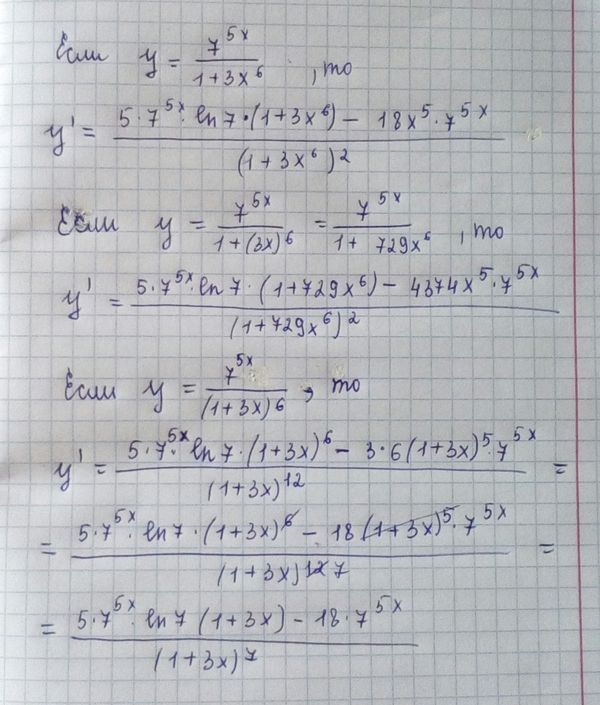 Если y = \frac{7^{5x}}{1+3x^6}, то
y' = \frac{5·7^{5x}·ln7·(1+3x^6) − 18x^5·7^{5x}}{(1+3x^6)^2}
Если y = \frac{7^{5x}}{1+(3x)^6} = \frac{7^{5x}}{1+ 729x^6}, то
y' = \frac{5·7^{5x}·ln7·(1+729x^6) − 4374x^5·7^{5x}}{(1+729x^6)^2}
Если y = \frac{7^{5x}}{(1+3x)^6}, то
y' = \frac{5·7^{5x}·ln7·(1+3x)^6 − 3·6(1+3x)^5·7^{5x}}{(1+3x)^{12}} =
= \frac{5·7^{5x}·ln7·(1+3x)^{\cancel{6}} − 18\cancel{(1+3x)^5}·7^{5x}}{(1+3x)^{\cancel{12} 7}} =
= \frac{5·7^{5x}·ln7 (1+3x) − 18·7^{5x}}{(1+3x)^7}